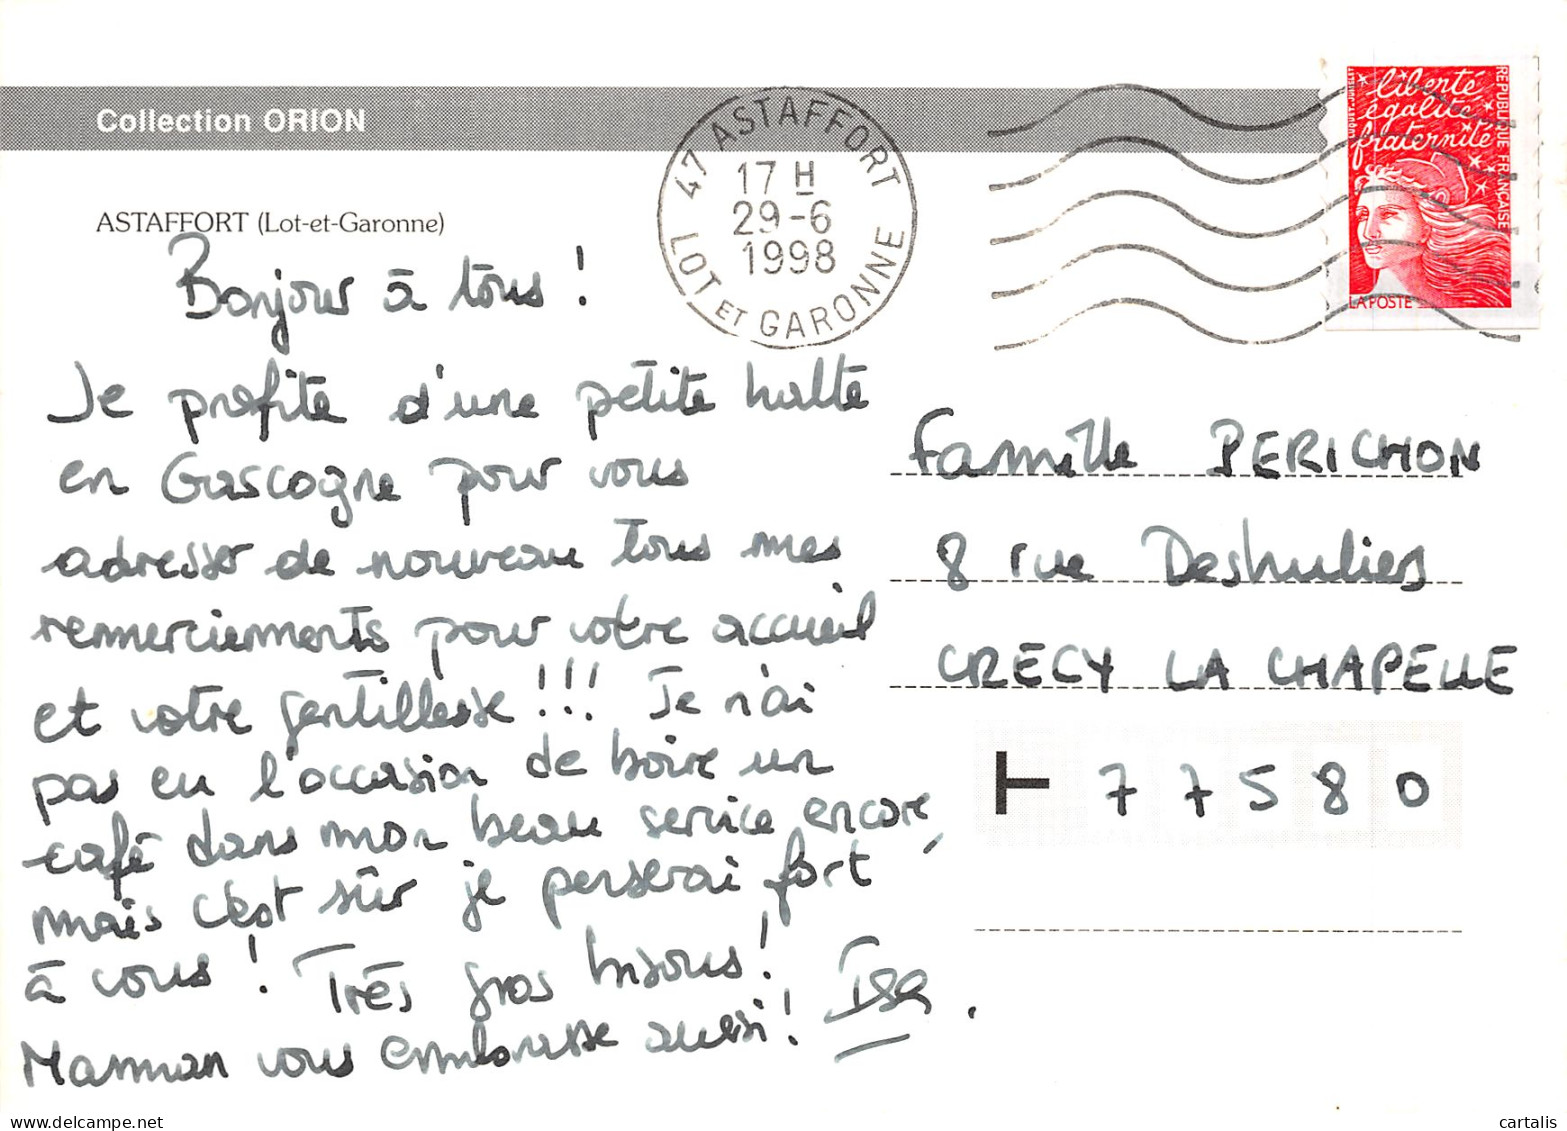 Collection ORION
ASTAFFORT (Lot-et-Garonne)
47 ASTAFFORT
17 H
29-6
1998
LOT ET GARONNE
liberté
égalité
fraternité
RÉPUBLIQUE FRANÇAISE
LA POSTE
Bonjour à tous !
Je profite d'une petite halte
en Gascogne pour vous
adresser de nouveau tous mes
remerciements pour votre accueil
et votre gentillesse !!! Je n'ai
pas eu l'occasion de boire un
café dans mon beau service encore
mais c'est sûr je penserai fort
à vous ! Très gros bisous !
Maman vous embrasse aussi ! Isa.
Famille PERICHON
8 rue Deshuliers
CRECY LA CHAPELLE
T 77580
delcampe.net
cartalis